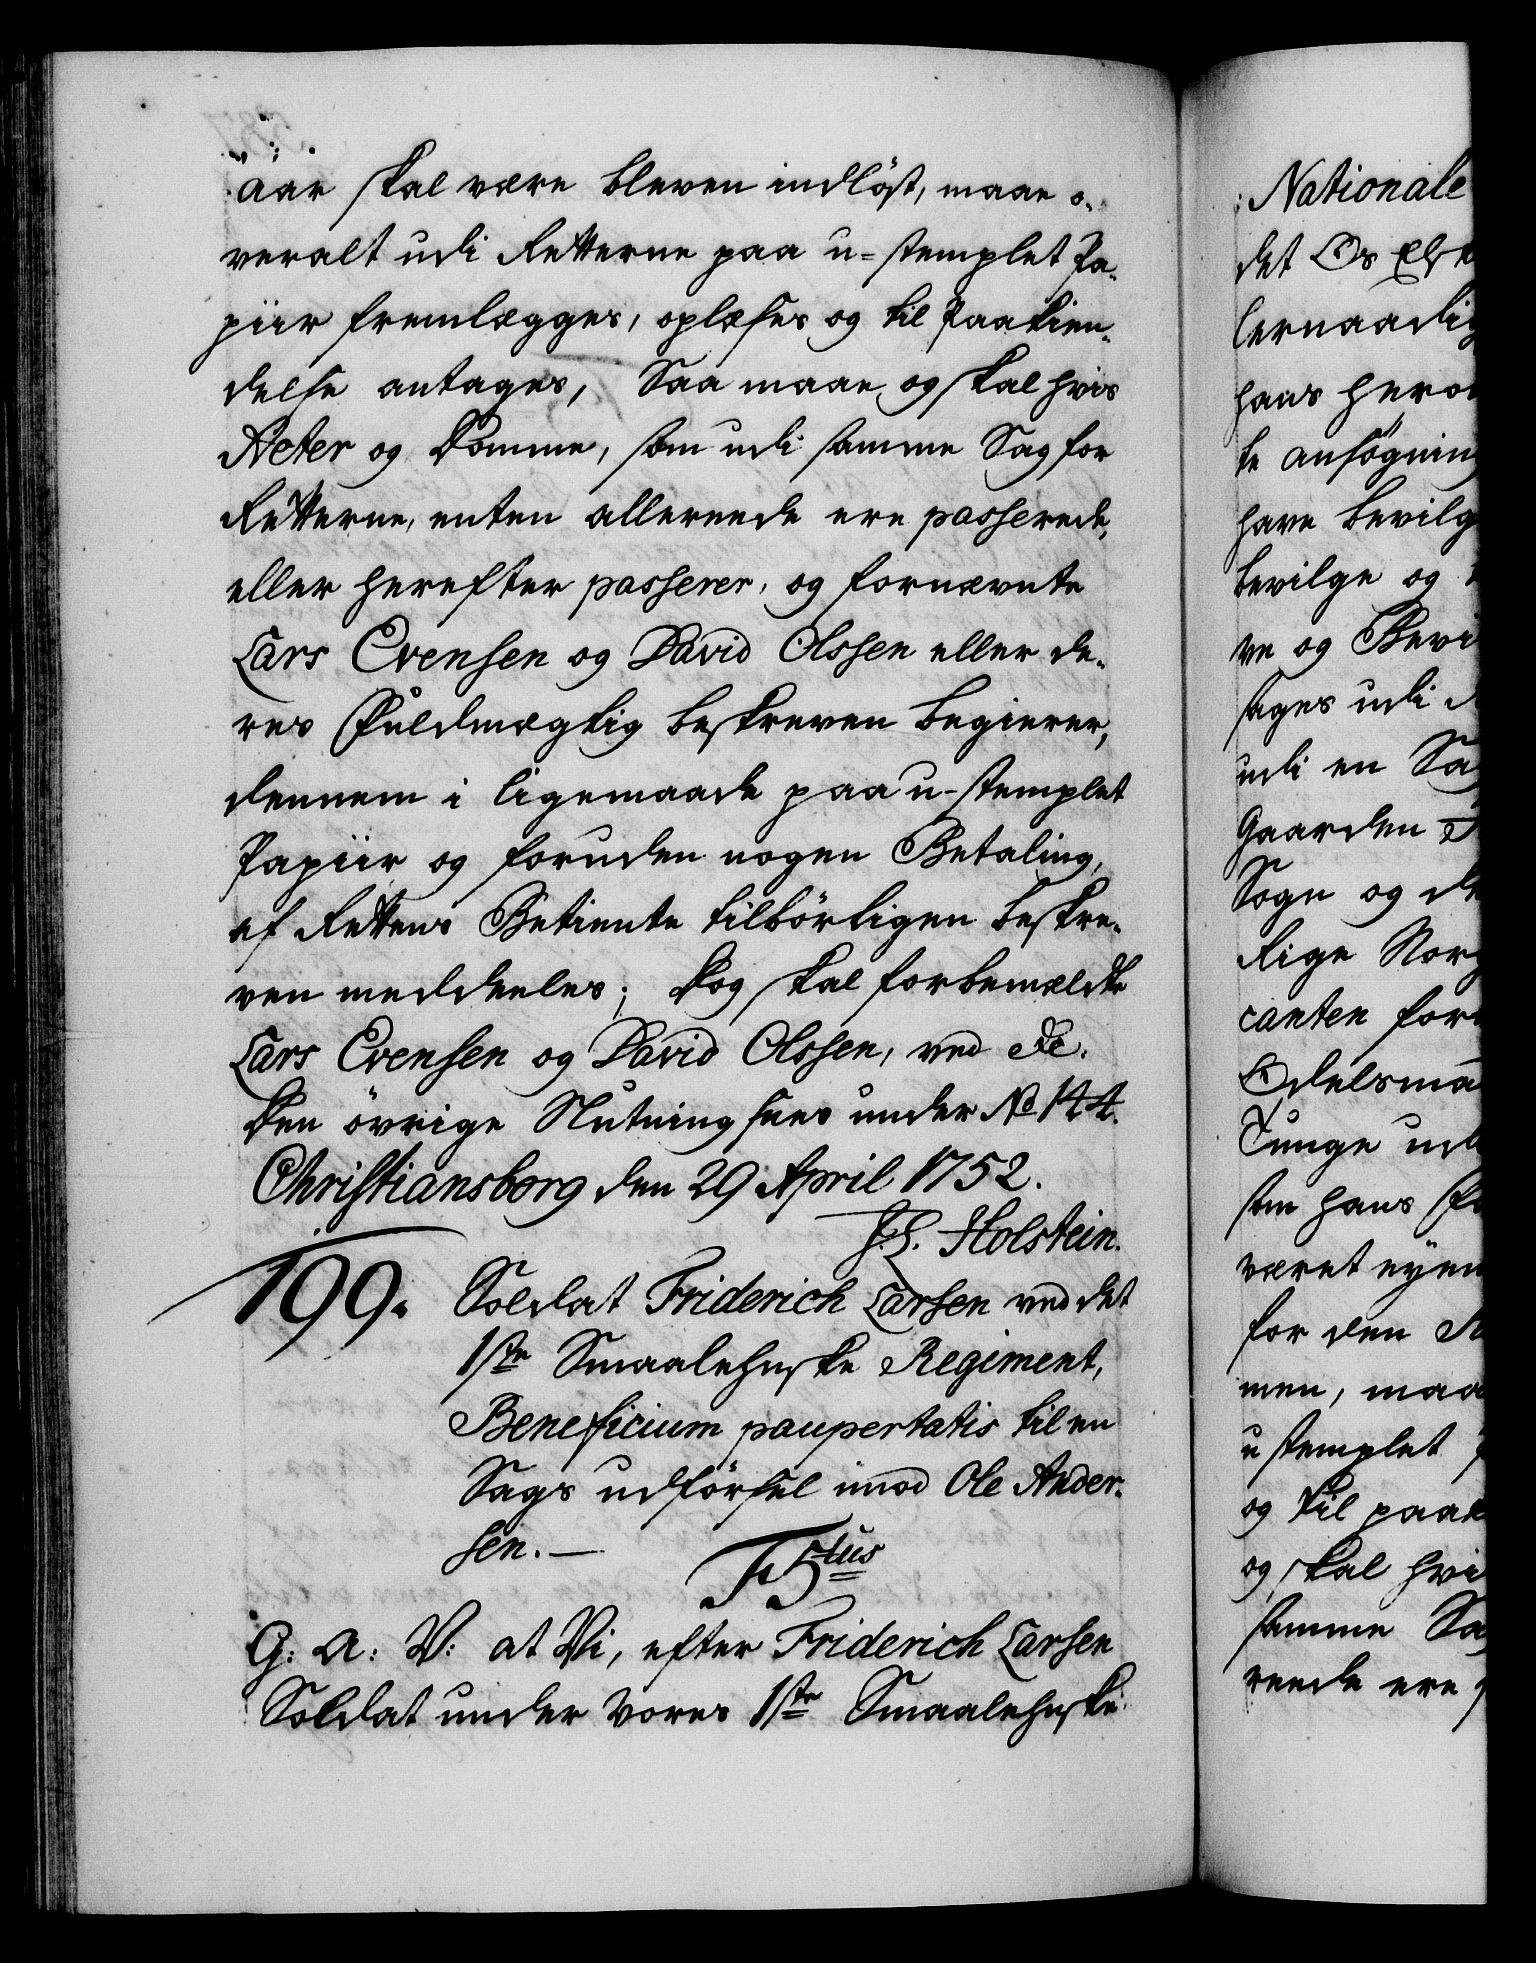 aar skal være bleven indløst, maae o-
veralt udi Retterne paa u-stemplet Pa-
piir fremlægges, oplæses og til Paakien-
delse antages, Saa maae og skal hvis
Acter og Domme, som udi samme Sag for
Retterne, enten allereede ere passerede,
eller herefter passerer, og fornævnte
Lars Evensen og David Olssen eller de-
res Fuldmægtig beskreven begierer,
dennem i ligemaade paa u-stemplet
Papiir og foruden nogen Betaling,
af Rettens Betiente tilbörligen beskre-
ven meddeeles; Dog skal forbemældte
Lars Evensen og David Olssen, ved &c.
Den övrige Slutning sees under No 144.
Christiansborg den 29 April 1752.
J. L. Holstein.
199. Soldat Friderich Larsen ved det
1ste Smaalehnske Regiment,
Beneficium paupertatis til en
Sags udförsel imod Ole Ander-
sen. —
F5tus
G: A: V: at Vi, efter Friderich Larsen
Soldat under Vores 1ste Smaalehnske
Nationale
det Os
lernaadig
hans hero
te ansøgning
have bevilg
bevilge og
ve og Bevi
tages udi
udi en Sag
Gaarden
Sogn og de
Rige Norg
canten for
Odelsma
Tunge ud
som hans
været eyen
for den
men, maa
u stemplet
og til paak
og skal hvi
samme Sa
reede ere